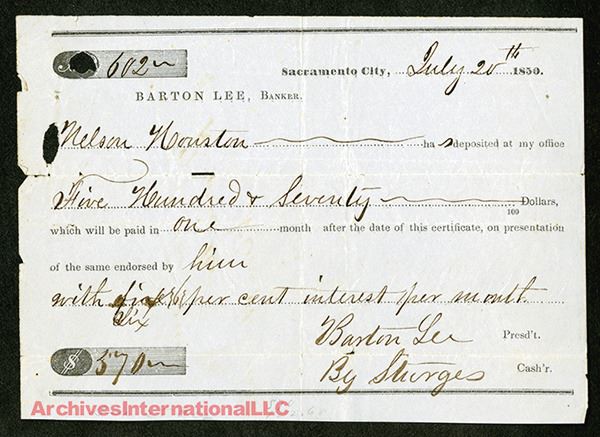 No 602
Sacramento City, July 20th 1850.
BARTON LEE, BANKER.
Nelson Houston has deposited at my office
Five Hundred & Seventy /100 Dollars,
which will be paid in one month after the date of this certificate, on presentation
of the same endorsed by him
with (6) per cent interest per month
Six
Barton Lee Presd't.
$ 570
By Sturges Cash'r.
ArchivesInternationalLLC